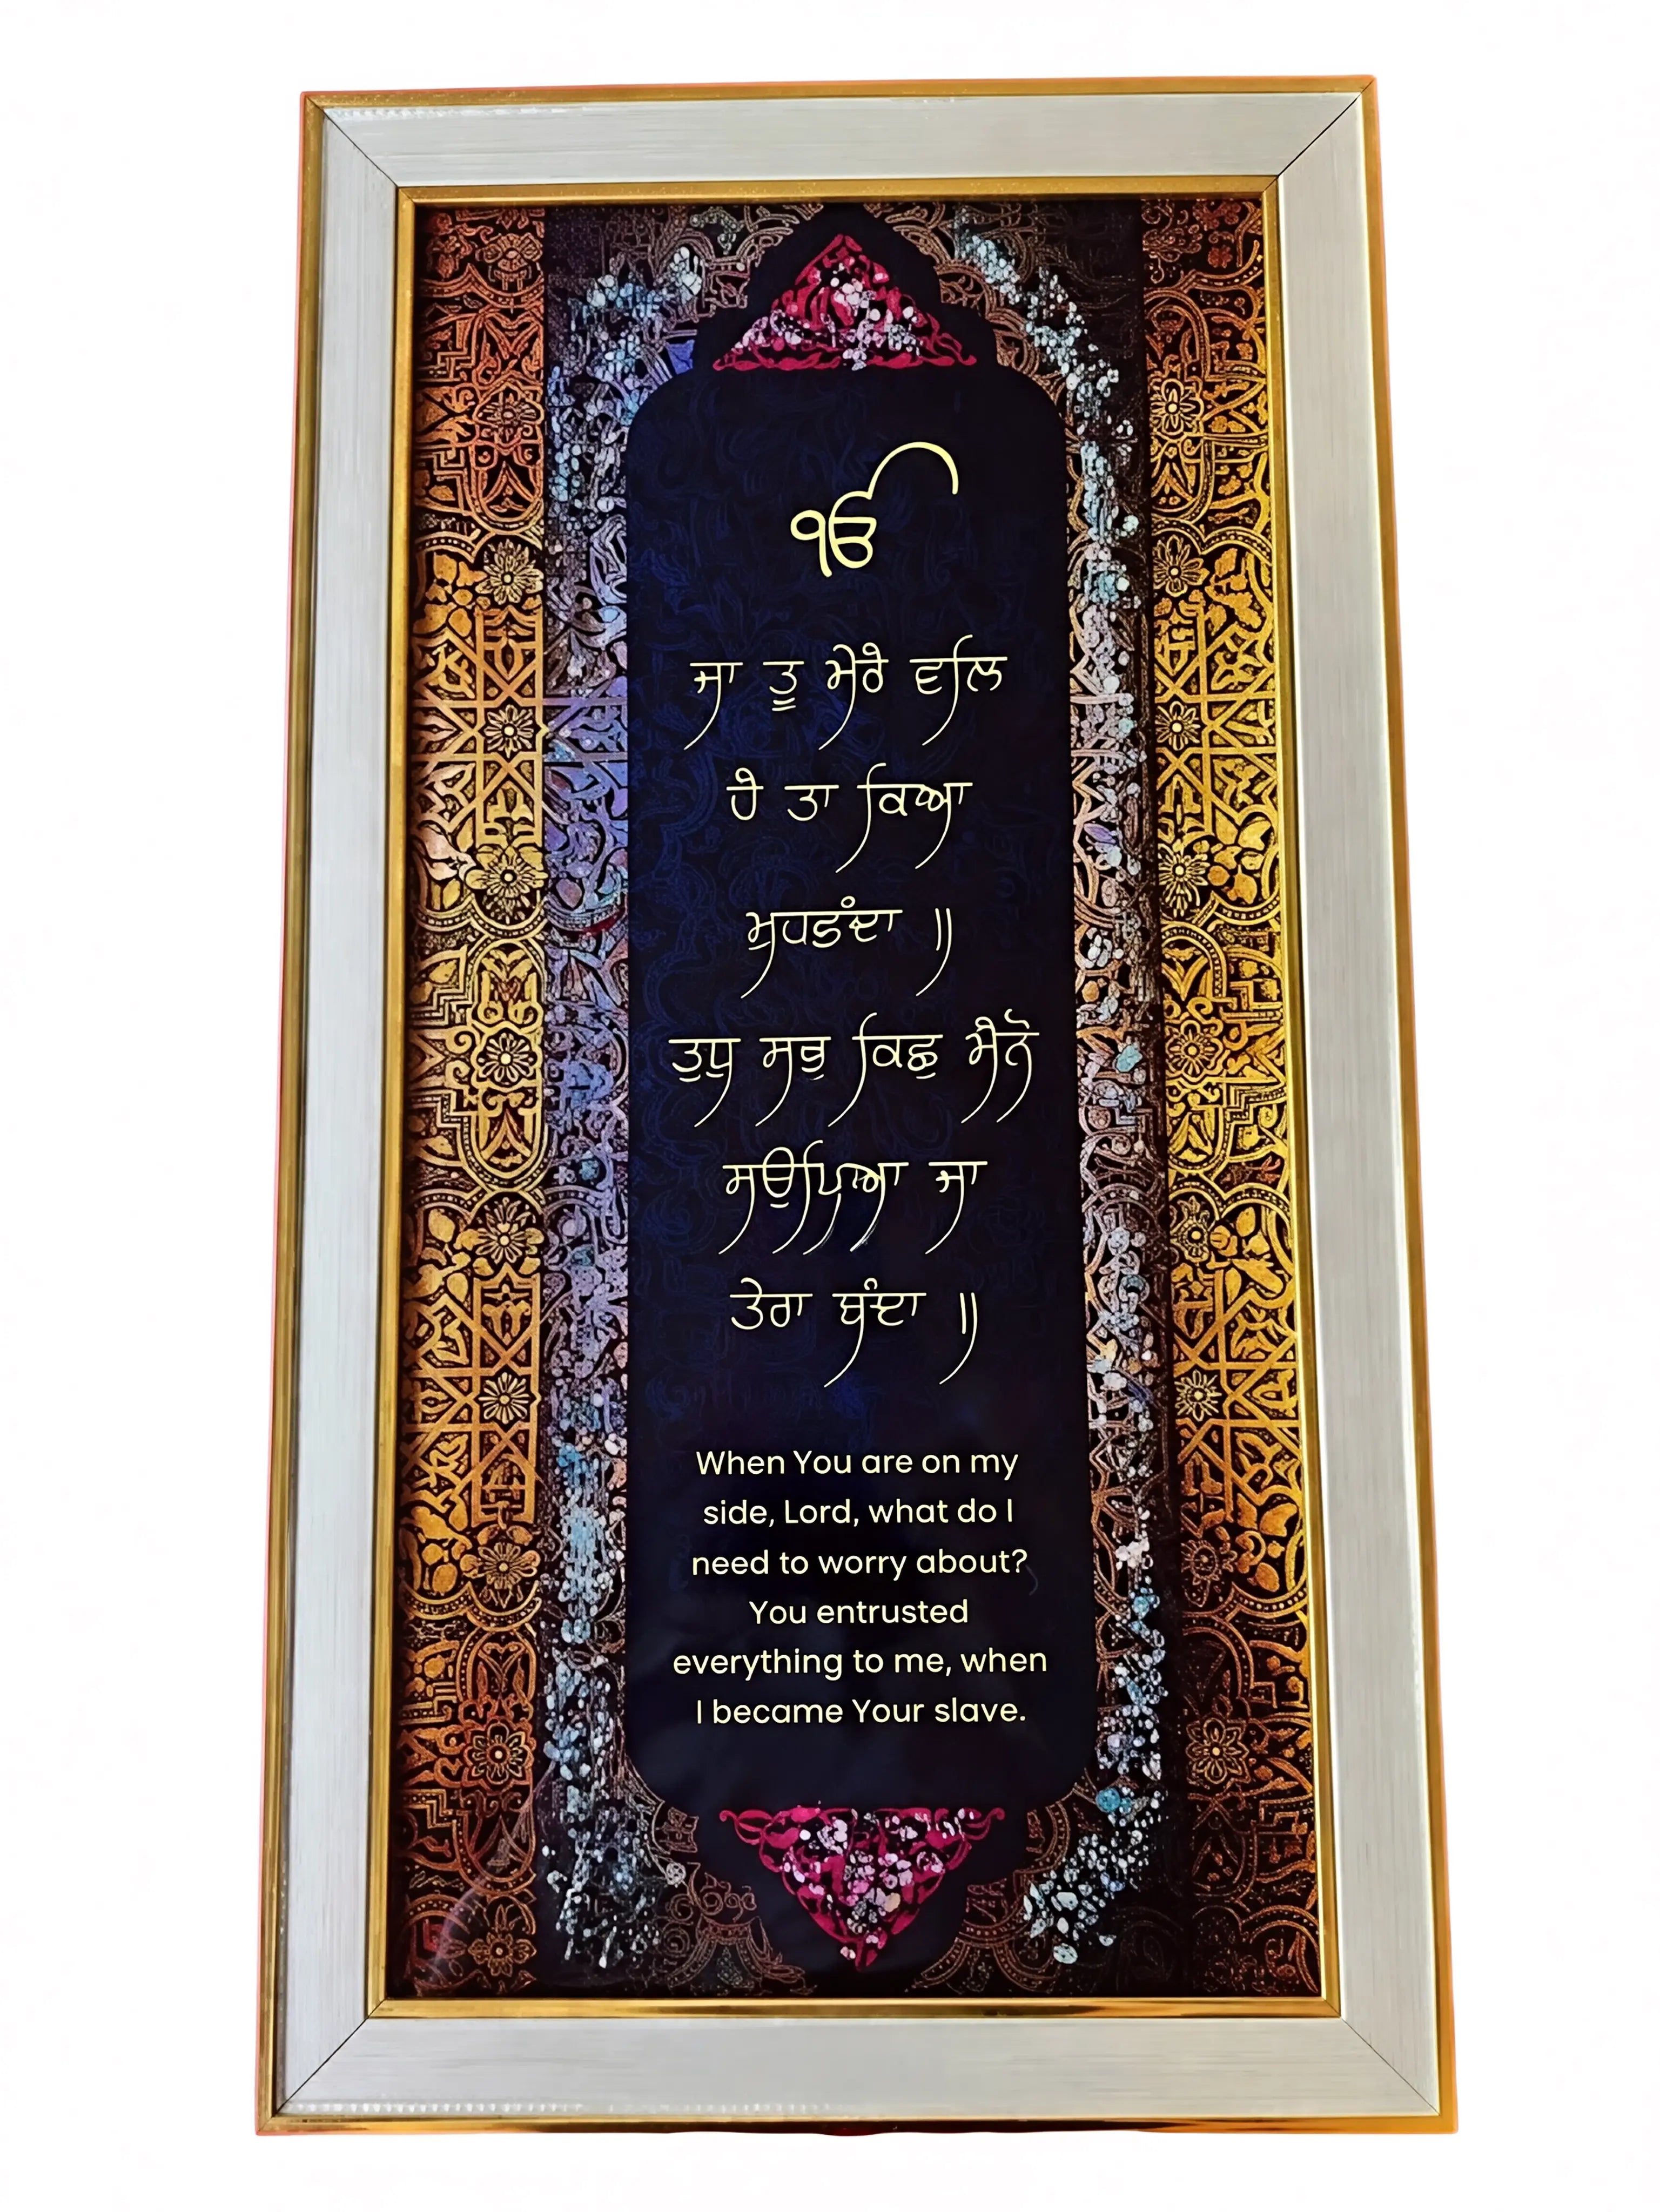 ੴ
ਜਾ ਤੂ ਮੇਰੈ ਵਲਿ
ਹੈ ਤਾ ਕਿਆ
ਮੁਹਡੰਦਾ ॥
ਤੁਧੁ ਸਭੁ ਕਿਛੁ ਮੈਨੋ
ਸਉਪਿਆ ਜਾ
ਤੇਰਾ ਬੰਦਾ ॥
When You are on my
side, Lord, what do I
need to worry about?
You entrusted
everything to me, when
I became Your slave.